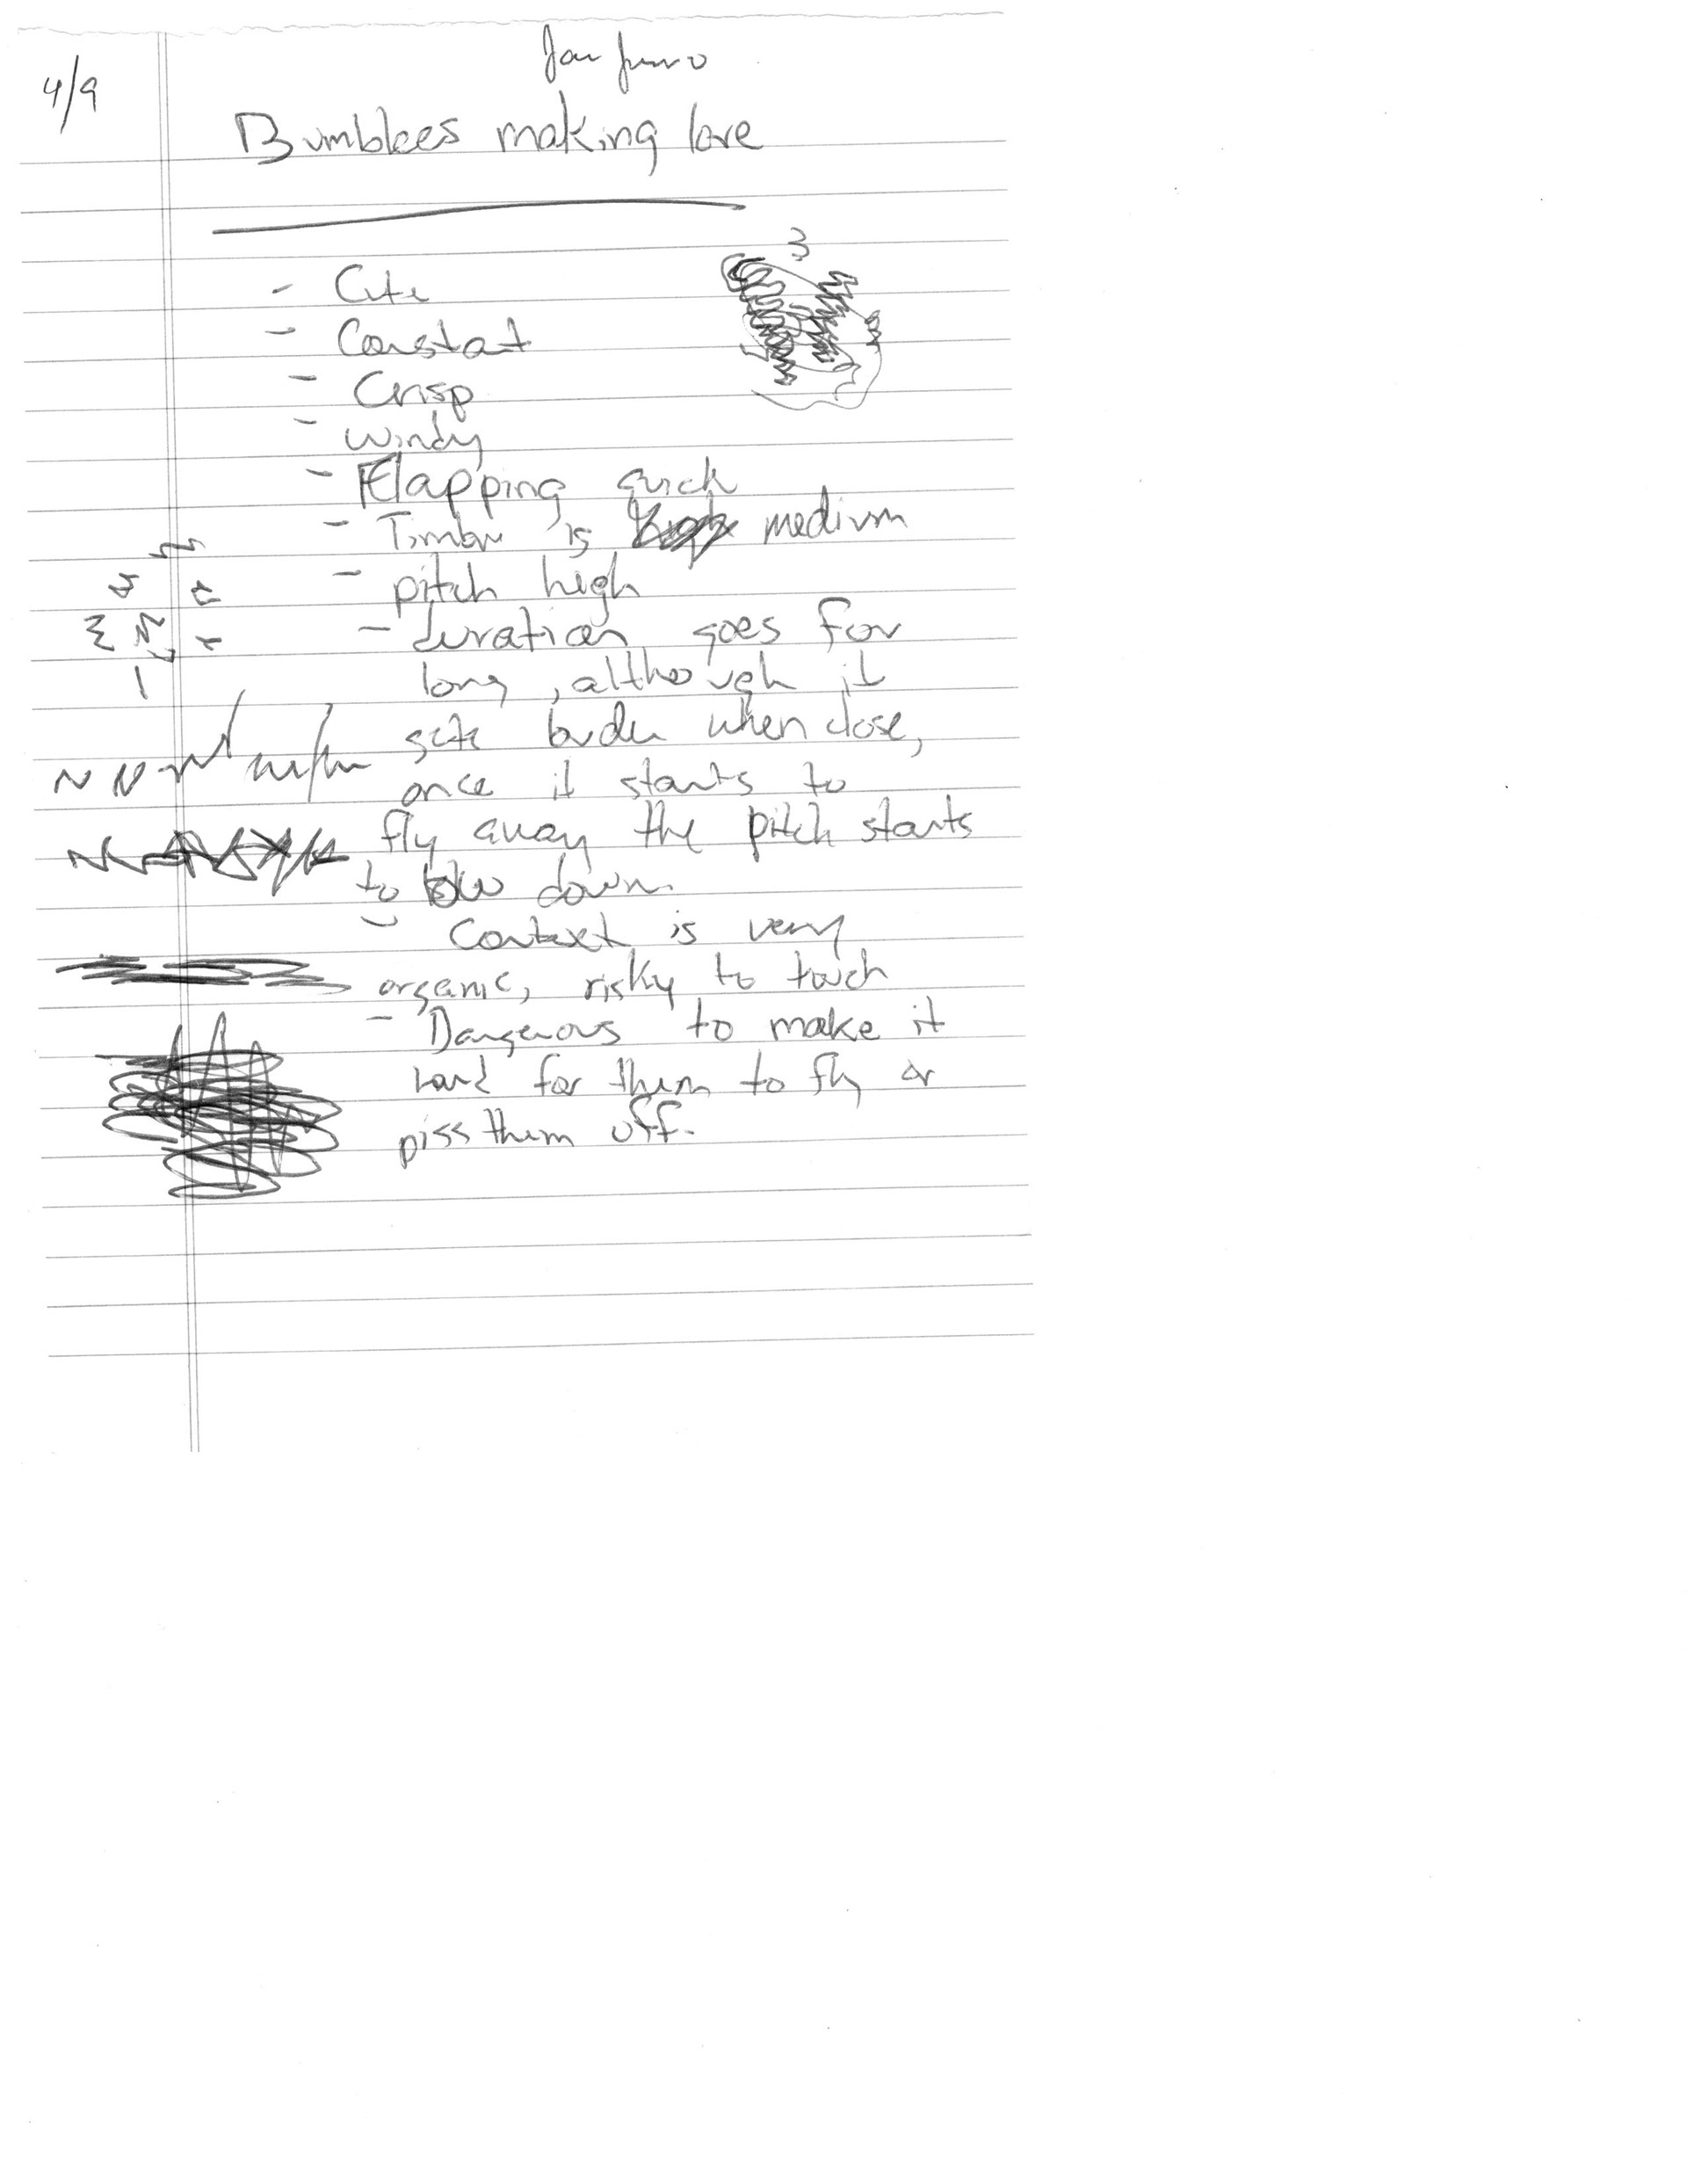 4/9
Bumblees making love
- Cute
- Constat
- Crisp
- windy
- Flapping quick
- Timbre is medium
- pitch high
- duration goes for
long, although it
gets louder when close,
once it starts to
fly away the pitch starts
to low down.
- Context is very
organic, risky to touch
- Dangerous to make it
hard for them to fly or
piss them off.